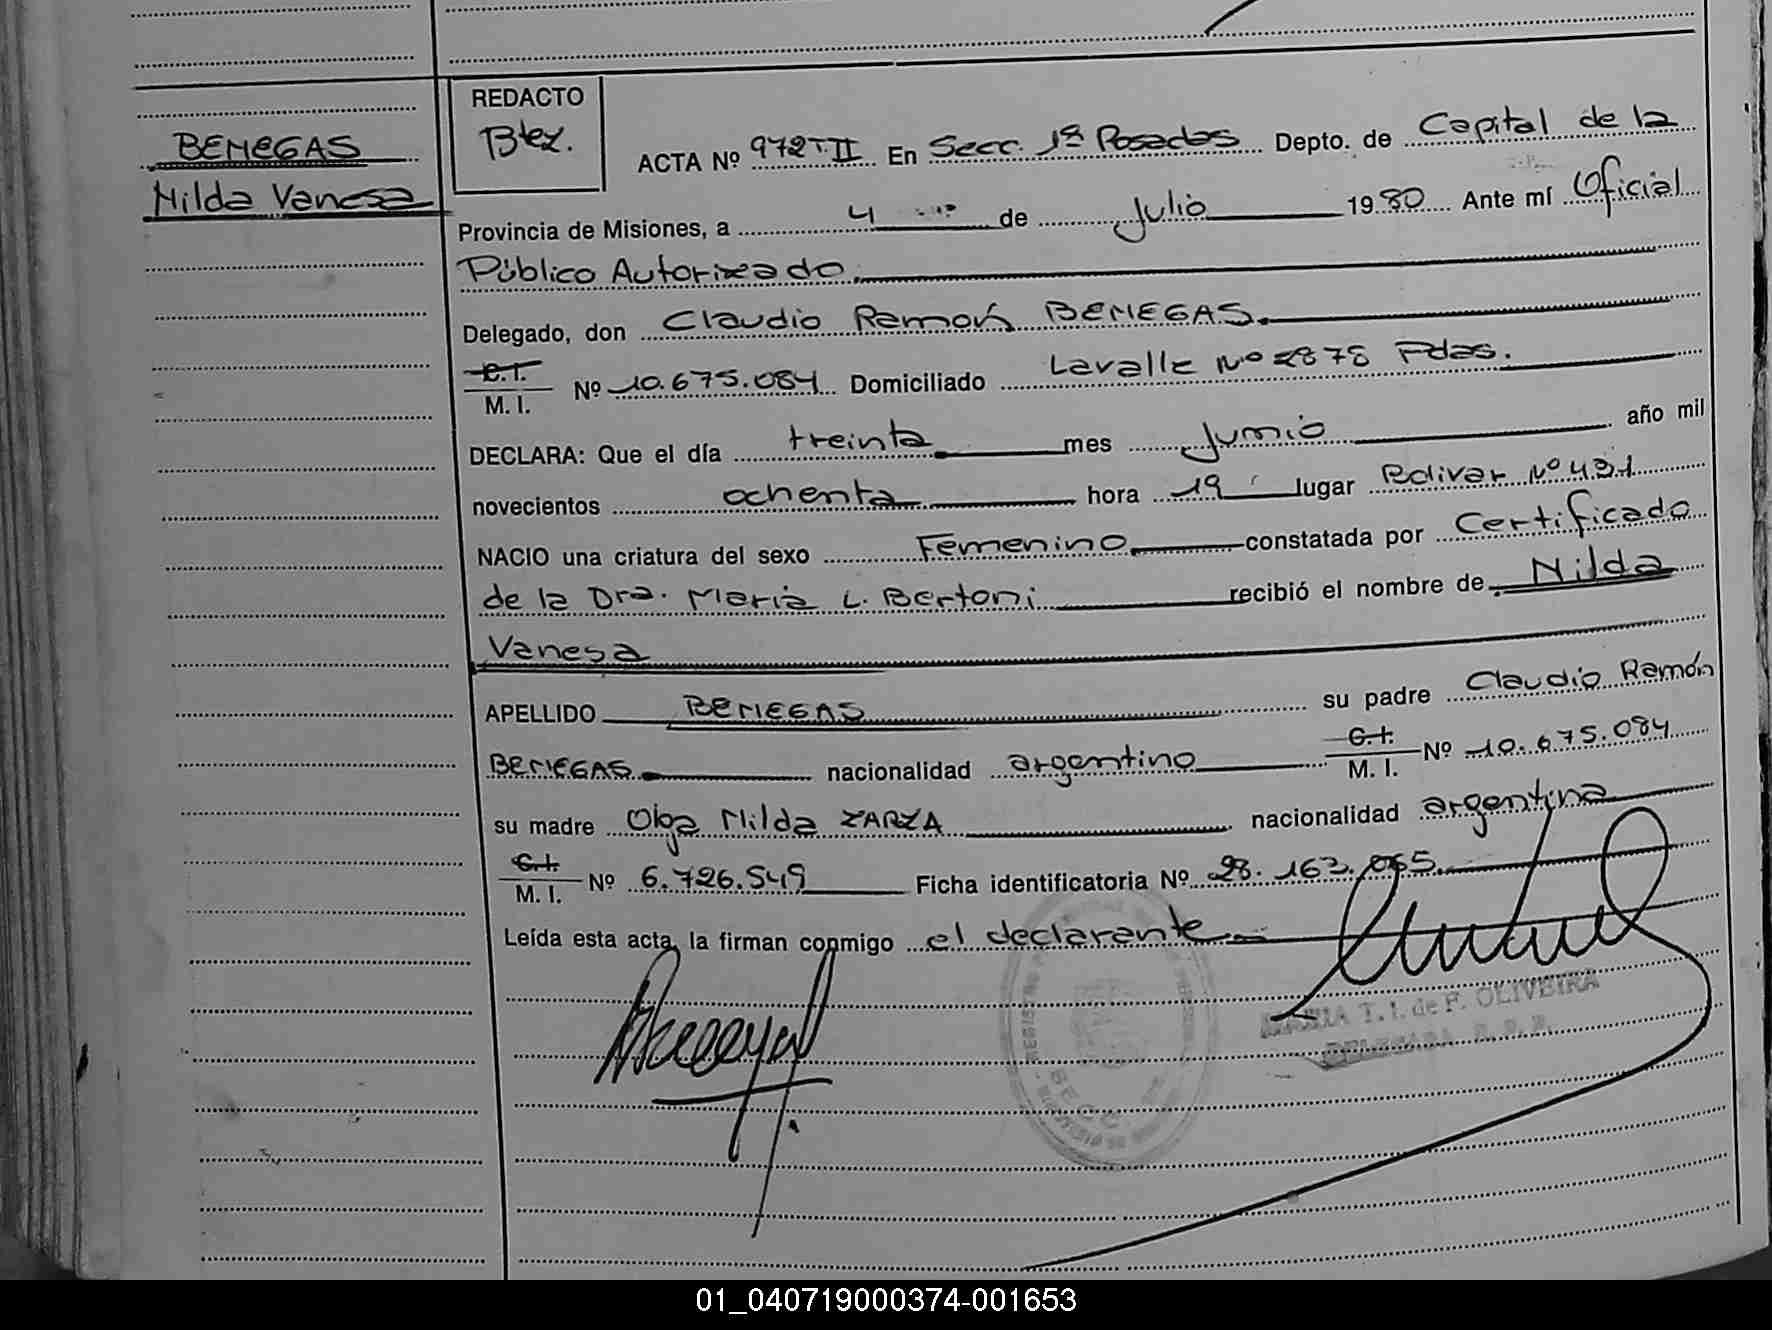 BENEGAS
Nilda Vanesa
REDACTO
Btez.
ACTA Nº 972 T II En Secc. 1ª Posadas Depto. de Capital de la
Provincia de Misiones, a 4 de Julio 1980 Ante mí Oficial
Público Autorizado.
Delegado, don Claudio Ramón BENEGAS.
C.I.
M. I. Nº 10.675.084 Domiciliado Lavalle Nº 2878 Pdas.
DECLARA: Que el día treinta mes Junio año mil
novecientos ochenta hora 19 lugar Bolivar Nº 431
NACIO una criatura del sexo Femenino constatada por Certificado
de la Dra. Maria L. Bertoni recibió el nombre de Nilda
Vanesa
APELLIDO BENEGAS su padre Claudio Ramón
BENEGAS nacionalidad argentino C.I. M. I. Nº 10.675.084
su madre Olga Nilda ZARZA nacionalidad argentina
C.I.
M. I. Nº 6.726.549 Ficha identificatoria Nº 28.163.065
Leída esta acta, la firman conmigo el declarante
MARIA T. I. de F. OLIVEIRA
DELEGADA R. P. P.
01_040719000374-001653